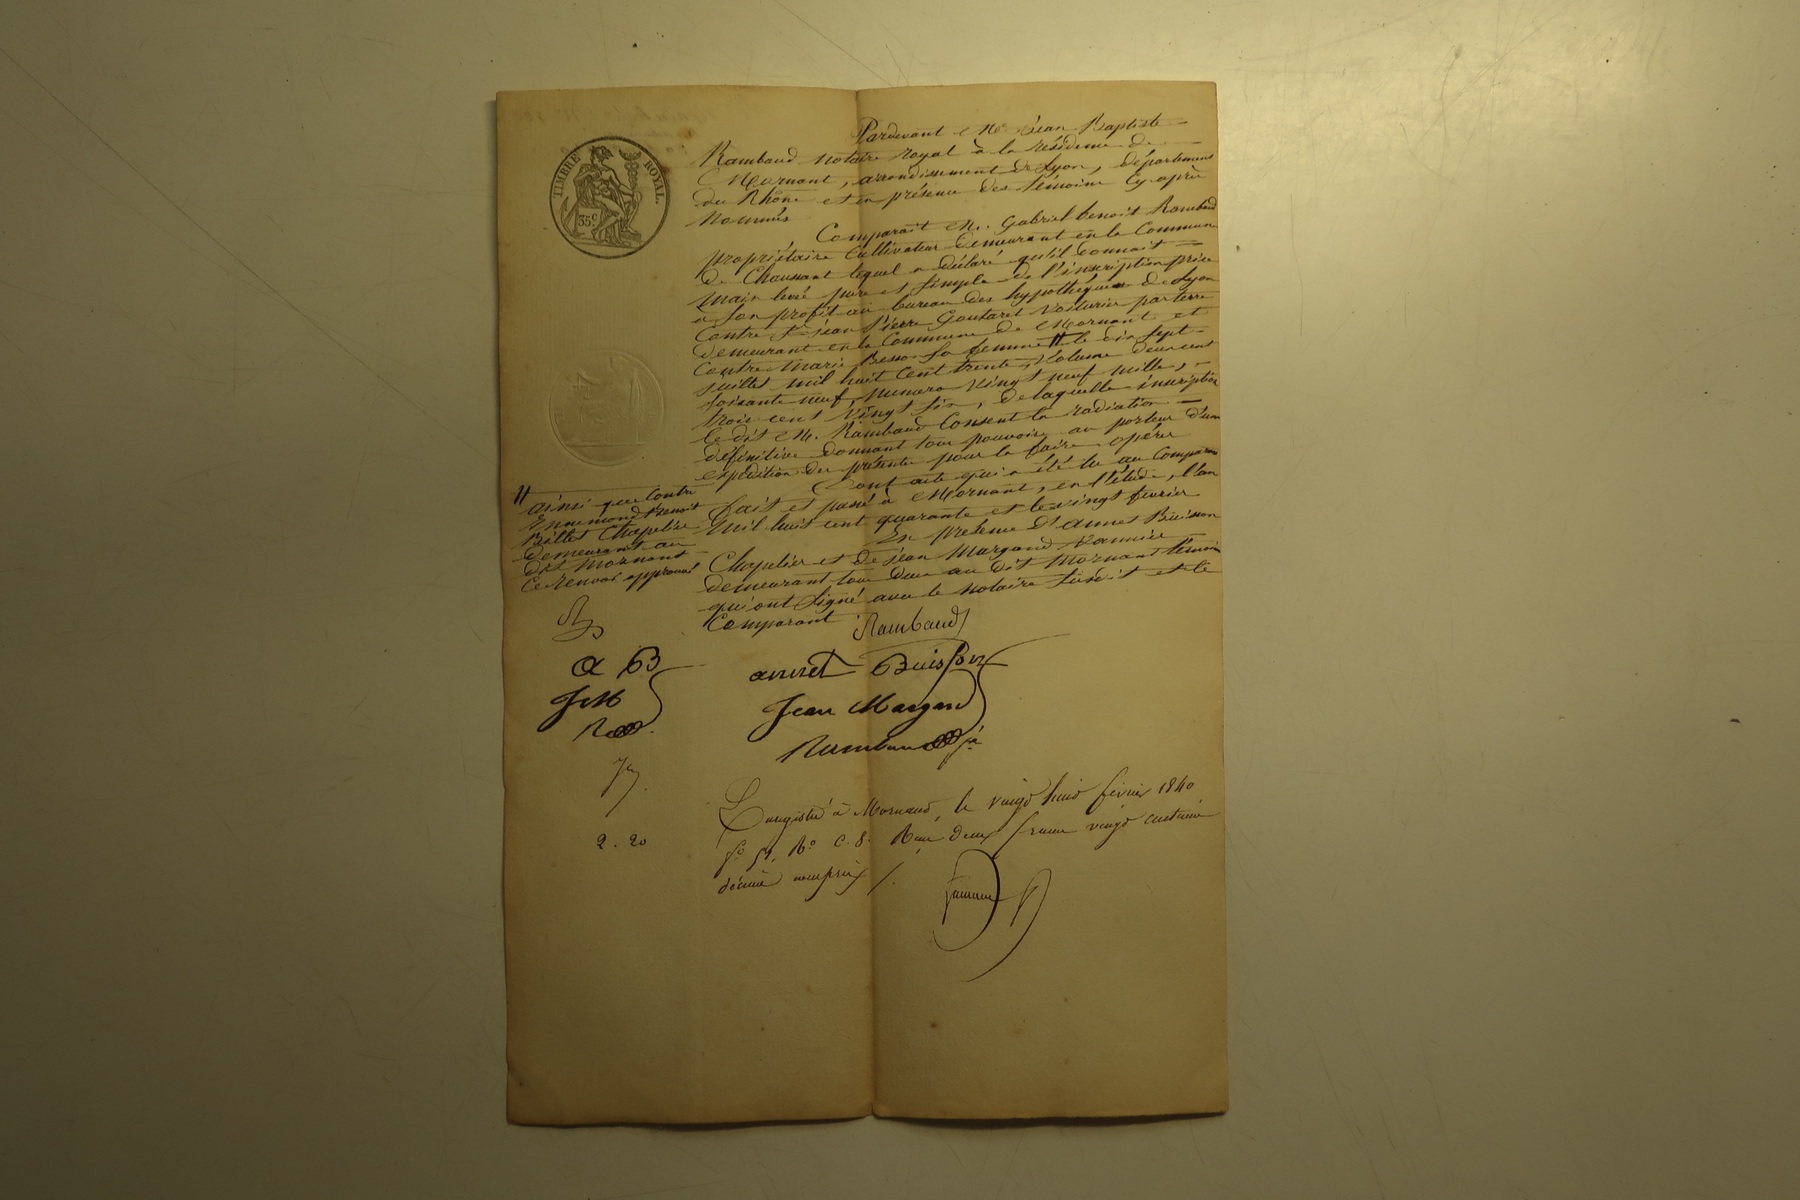 TIMBRE ROYAL.
35 c
Pardevant Me. Jean Baptiste
Rambaud notaire royal à la résidence de
Mornant, arrondissement de Lyon, département
du Rhône et en présence des témoins cy après
Nommés
Comparait M. Gabriel benoit Rambaud
propriétaire Cultivateur demeurant en la Commune
de Chaussant lequel a déclaré qu'il donnait
Main levé pure et Simple de l'inscription prise
a Son profit au bureau des hypothèques de Lyon
Contre Sr. jean Pierre Goutaret Voiturier par terre
demeurant en la Commune de Mornant et
Contre Marie Besson Sa femme # le dix sept
juillet mil huit Cent trente, Volume deux cent
soixante neuf, Numero Vingt neuf mille,
trois cent Vingt six, de laquelle inscription
le dit M. Rambaud Consent la radiation
définitive donnant tous pouvoirs au porteur d'une
expédition des présentes pour la faire opérer
Dont acte qui a été lu au Comparant
fait et passé à Mornant, en l'étude, l'an
Mil huit cent quarante et le vingt février
En présence D'annet Buisson
Chapelier et de jean Margand Vannier
demeurant tous deux au dit Mornant témoins
qui ont Signé avec le notaire susdit et le
Comparant
# ainsi que Contre
Ennemond Benoit
Billet Chapelier
demeurant au
dit Mornant
Ce renvoi approuvé
Rambaud
a B
annet Buisson
J M
Jean Margand
R
Rambaud
2 . 20
Enregistré à Mornant, le vingt huit février 1840
fo 51. Ro C. 8. Recu deux francs vingt centimes
décime compris